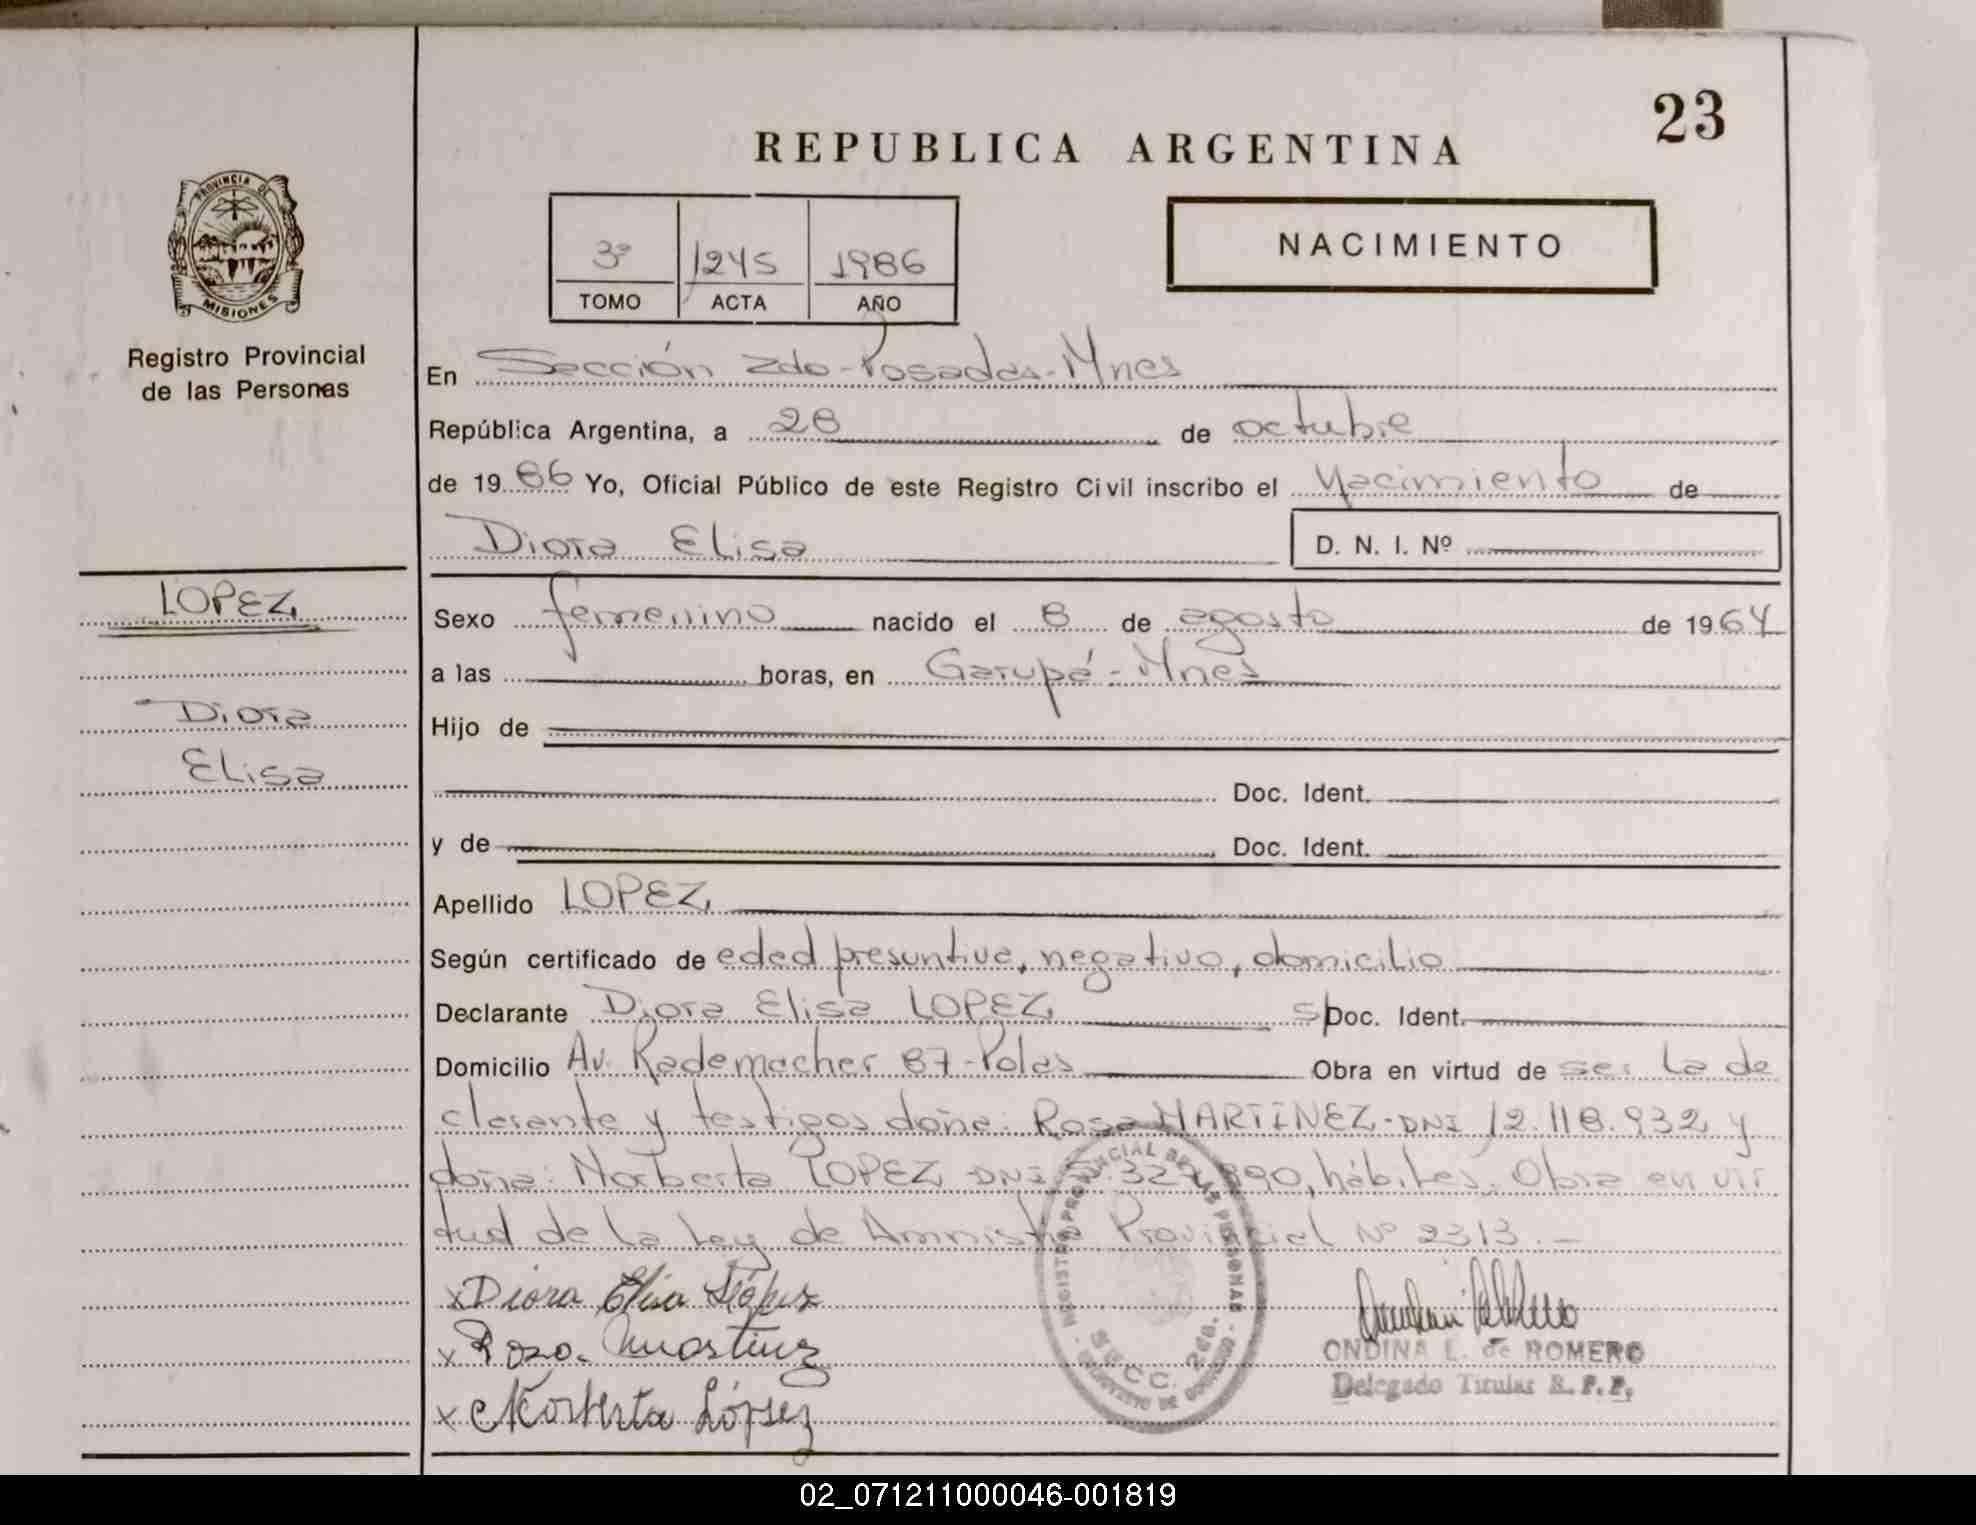 23
REPUBLICA ARGENTINA
PROVINCIA DE
MISIONES
Registro Provincial
de las Personas
3º 1245 1986
TOMO ACTA AÑO
NACIMIENTO
En Sección 2do-Posadas-Mnes
República Argentina, a 28 de octubre
de 1986 Yo, Oficial Público de este Registro Civil inscribo el Nacimiento de
Diora Elisa D. N. I. Nº
LOPEZ
Diora
Elisa
Sexo femenino nacido el 8 de agosto de 1964
a las horas, en Garupá-Mnes
Hijo de
Doc. Ident.
y de Doc. Ident.
Apellido LOPEZ
Según certificado de edad presuntiva, negativo, domicilio
Declarante Diora Elisa LOPEZ s/Doc. Ident.
Domicilio Av. Rademacher 87-Pdas Obra en virtud de ser la de
clarante y testigos doña: Rosa MARTINEZ-DNI 12.118.932 y
doña: Norberta LOPEZ DNI hábiles. Obra en vir
tud de la Ley de Amnistía Provincial Nº 2313.-
x Diora Elisa López
x Rosa Martinez
x Norberta López
REGISTRO PROVINCIAL DE LAS PERSONAS
SECC. 2da.
ONDINA L. de ROMERO
Delegado Titular R.P.P.
02_071211000046-001819